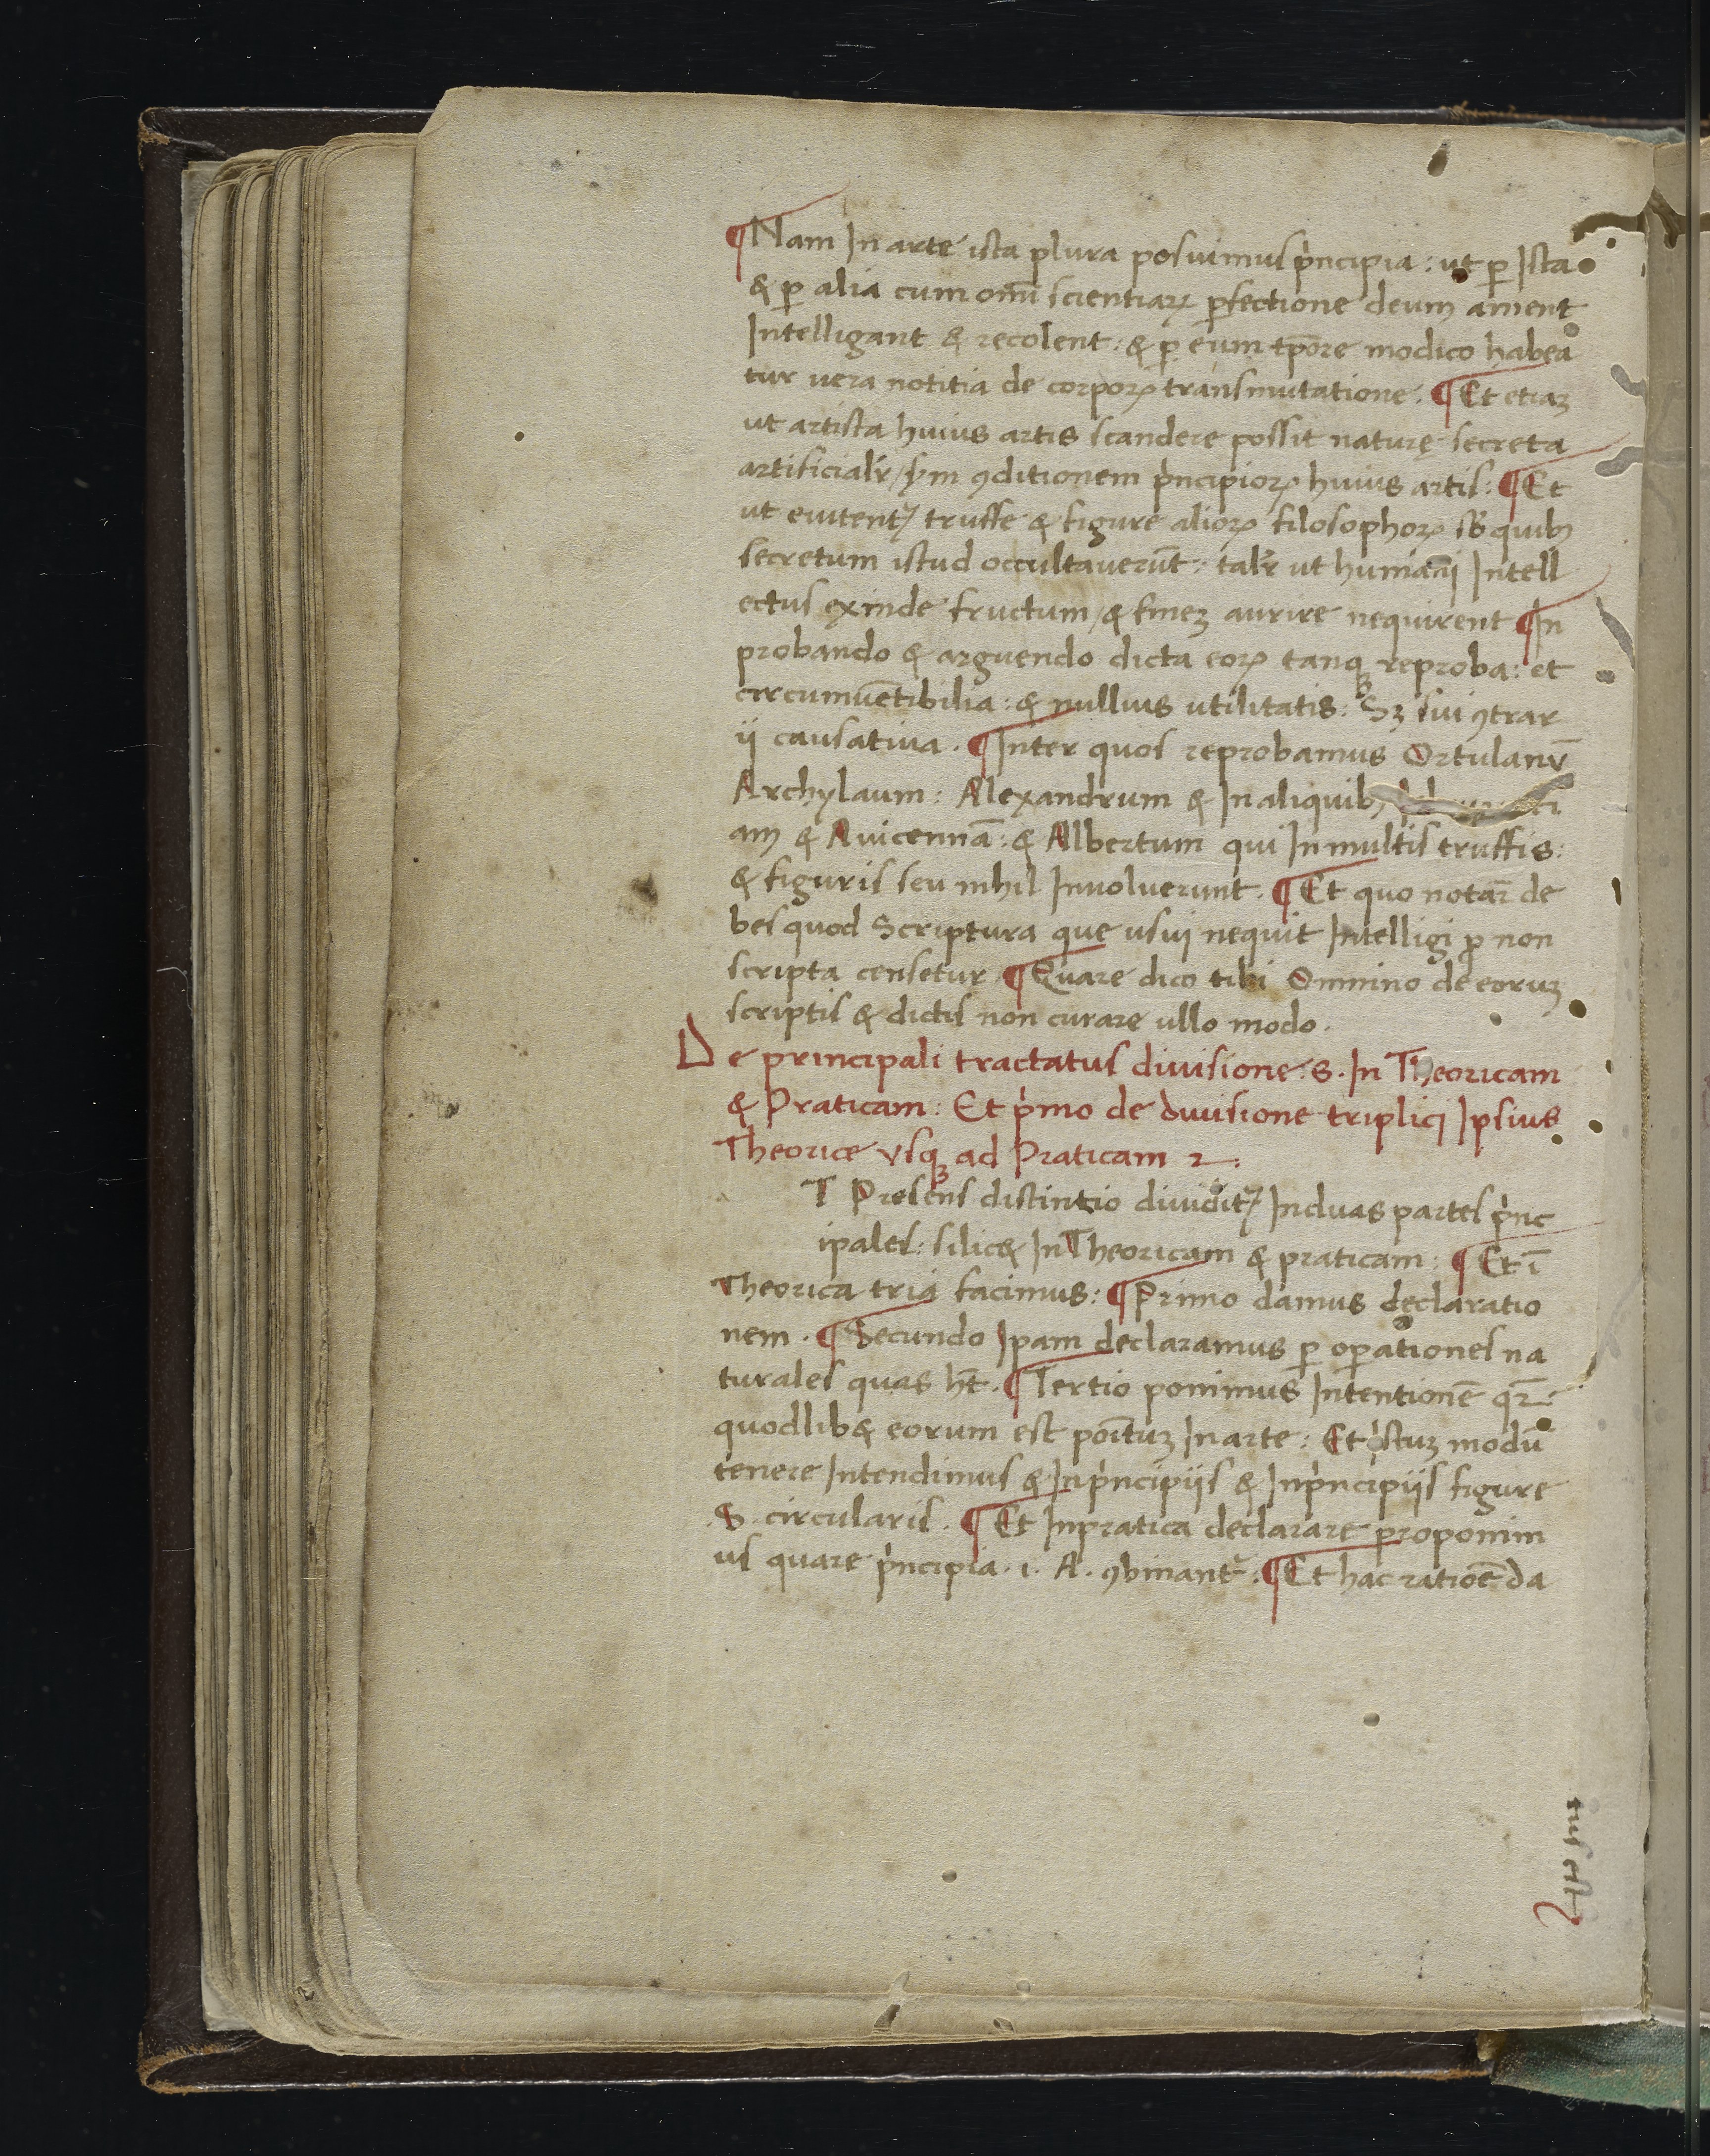 ¶Nam In arte ista plura posuimus pͥncipia : ut ꝑ Ista
& ꝑ alia cum omnī scientiaꝝ ꝑfectione deum ament
Intelligant & recolent : & ꝑ eum tp̄ore modico habeā
tur vera notitia de corporꝝ transmutatione . ¶Et etiaꝫ
ut artista huius artis scandere possit naturę secreta
artificialr̄ / s̄m ꝯditionem pͥncipioꝝ huius artis : ¶Et
ut euitentᷣ truffe & figure alioꝝ filosophoꝝ sƀ quibꝫ
secretum istud occultauerūt : talr̄ ut humani Intell
ectus exinde fructum / & fineꝫ aurire nequirent ¶In
probando & arguendo dicta eoꝝ tanqꝫ reproba : et
circumuētibilia : & nullius utilitatis : Sꝫ sui ꝯtrar
ij causatiua . ¶Inter quos reprobamus Ortulanū
Archylaum : Alexandrum & In aliquibꝫ
am & Auicennā : & Albertum qui In multis truffis :
& figuris seu nihil Inuoluerunt . ¶Et quo notar̄ de
bes quod Scriptura que usui nequit Intelligi ꝓ non
scripta censetur ¶Quare dico tibi Omnino de eoruꝫ
scriptis & dictis non curare ullo modo .
De principali tractatus diuisione .s. In Theoricam
& Praticam : Et pͥmo de diuisione triplici Ipsius
Theorice vsqꝫ ad Praticam 2 .
T Presens distintio diuiditᷣ In duas partes pͥnc
ipales : silic& In Theoricam & praticam : ¶Et ī
Theorica tria facimus : ¶Primo damus declaratio
nem . ¶Secundo Ipam declaramus ꝑ oꝑationes na
turales quas hēt . ¶Tertio ponimus Intentionē qr̄
quodlib& eorum est poītuꝫ In arte : Et istuꝫ modū
tenere Intendimus & In pͥncipijs & In pͥncipijs figure
.S. circularis . ¶Et In pratica declarare proponim
us quare pͥncipia .1. A. ꝯbinantᷣ : ¶Et hac ratiōe da
tus est